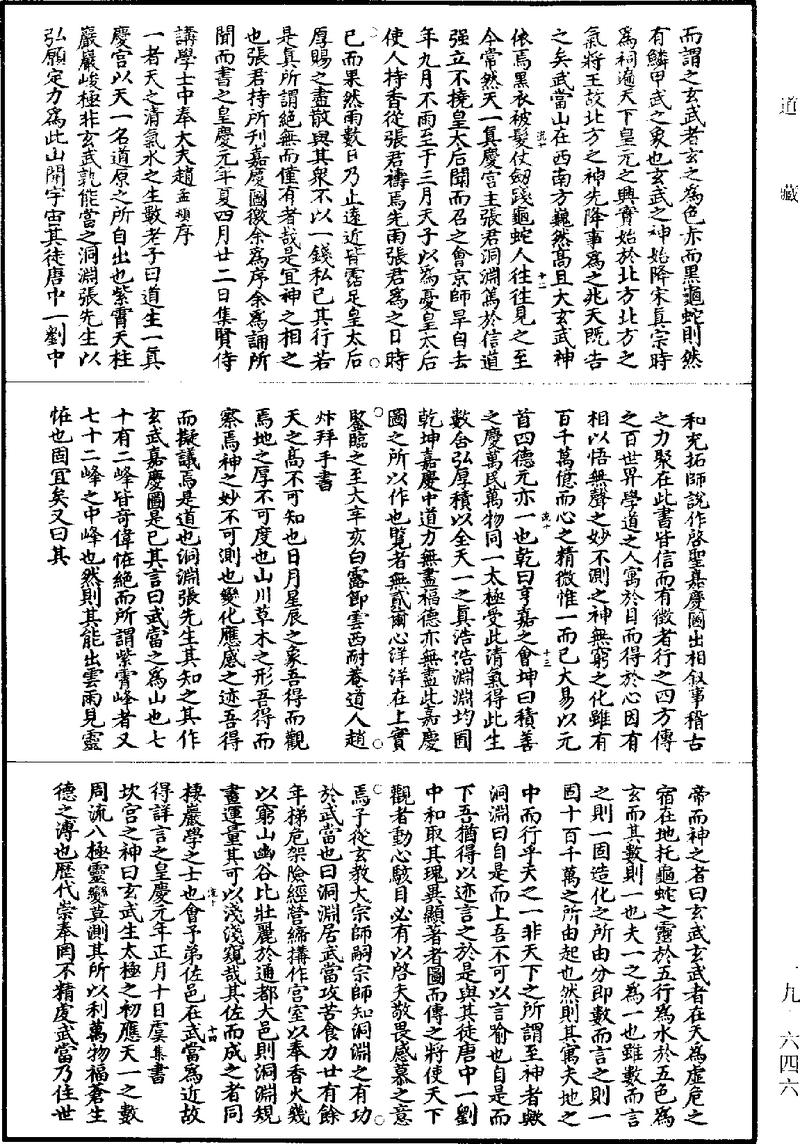 而謂之玄武者玄之為色赤而黑龜蛇則然
有鱗甲武之象也玄武之神始降宋真宗時
為祠遍天下皇元之興實始於北方北方之
氣將王故北方之神先降事為之兆天既告
之矣武當山在西南方巍然高且大玄武神
依焉黑衣被髮仗劒踐龜蛇人往往見之至
今常然天一真慶宮主張君洞淵篤於信道
强立不撓皇太后聞而召之會京師旱自去
年九月不雨至于三月天子以為憂皇太后
使人持香從張君禱焉先雨張君為之日時
已而果然雨數日乃止遠近皆霑足皇太后
厚賜之盡散與其衆不以一錢私已其行若
是真所謂絕無而僅有者哉是宜神之相之
也張君持所刊嘉慶圖徵余為序余為誦所
聞而書之皇慶元年夏四月廿二日集賢侍
講學士中奉大夫趙孟頫序
一者天之清氣水之生數老子曰道生一真
慶宮以天一名道原之所自出也紫霄天柱
巖巖峻極非玄武孰能當之洞淵張先生以
弘願定力為此山開宇宙其徒唐中一劉中
和光拓師說作啓聖嘉慶圖出相叙事稽古
之力聚在此書皆信而有徵者行之四方傳
之百世學道之人寓於目而得於心因有
相以悟無聲之妙不測之神無窮之化雖有
百千萬億而心之精微惟一而已大易以元
首四德元亦一也乾曰亨嘉之會坤曰積善
之慶萬民萬物同一太極受此清氣得此生
數含弘厚積以全天一之真浩浩淵淵均囿
乾坤嘉慶中道力無盡福德亦無盡此嘉慶
圖之所以作也覽者無貳爾心洋洋在上實
鑒臨之至大辛亥白露節雲西耐菴道人趙
炞拜手書
天之高不可知也日月星辰之象吾得而觀
焉地之厚不可度也山川草木之形吾得而
察焉神之妙不可測也變化應感之迹吾得
而擬議焉是道也洞淵張先生其知之其作
玄武嘉慶圖是已其言曰武當之為山也七
十有二峰皆奇偉恠絕而所謂紫霄峰者又
七十二峰之中峰也然則其能出雲雨見靈
恠也固宜矣又曰其
帝而神之者曰玄武玄武者在天為虛危之
宿在地托龜蛇之靈於五行為水於五色為
玄而其數則一也夫一之為一也雖數而言
之則一固造化之所由分即數而言之則一
固十百千萬之所由起也然則其寓夫地之
中而行乎天之一非天下之所謂至神者歟
洞淵曰自是而上吾不可以言喻也自是而
下吾猶得以迹言之於是與其徒唐中一劉
中和取其瑰異顯著者圖而傳之將使天下
觀者動心駭目必有以啓夫敬畏感慕之意
焉子從玄教大宗師嗣宗師知洞淵之有功
於武當也曰洞淵居武當攻苦食力廿有餘
年梯危架險經營締搆作宮室以奉香火幾
以窮山幽谷比壯麗於通都大邑則洞淵規
畫運量其可以淺淺窺哉其佐而成之者同
棲巖學之士也會予弟佐邑在武當為近故
得詳言之皇慶元年正月十日虞集書
坎宮之神曰玄武生太極之初應天一之數
周流八極靈變莫測其所以利萬物福蒼生
德之溥也歷代崇奉罔不精虔武當乃住世
道藏
一九·六四六